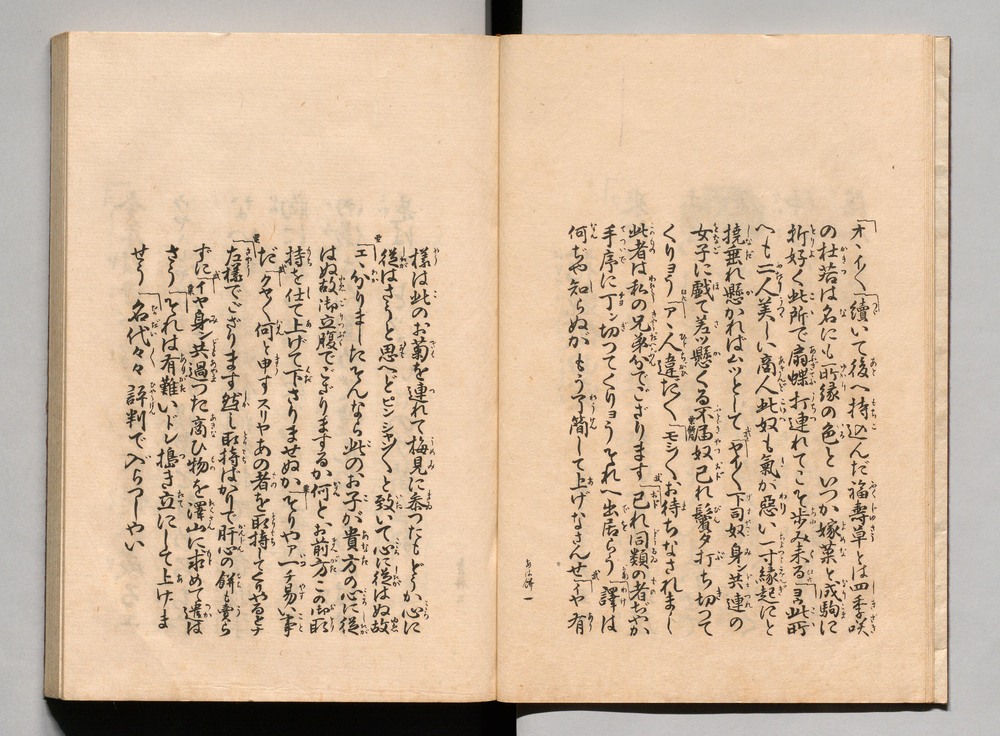 オヽイ〳〵續いて後へ持込んだ福壽草とは四季咲
の杜若は名にも所縁の色といつか嫁菜と成駒に
折好く此所で扇蝶打連れてこそ歩み来る ヨ此所
へも二人美しい商人此奴も氣が惡い一寸縁起にと
撓垂れ懸かればムツとして ヤイ〳〵下司奴身ン共連の
女子に戯て差ツ懸くる不届奴己れ鬢タ打ち切つて
くりヨう アヽ人違だ〳〵 モシ〳〵お待ちなされまし
此者は私の兄弟分でござります 己れ同類の者ぢやか
手序に丁ン切つてくりヨうそれへ出居らう 譯は
何ぢや知らぬがもう了簡して上げなさんせ イヤ有
一
樣は此のお菊を連れて梅見に參つたもどうか心に
從はさうと思へどピンシヤン〳〵と致いて心に從はぬ故
エヽ分りましたそんなら此のお子が貴方の心に從
はぬ故御立腹でござりまするか何と、お前方この御取
持を仕て上げて下さりませぬか そりやア一チ易い事
だ 〳〵何と申すスリヤあの者を取持してくやるとナ
左樣でござります然し取持ばかりで肝心の餅も賣ら
ずに イヤ身ン共過つた商ひ物を澤山に求めて遣は
さう それは有難いドレ搗き立にして上げま
せう 名代々々評判で入らつしやい